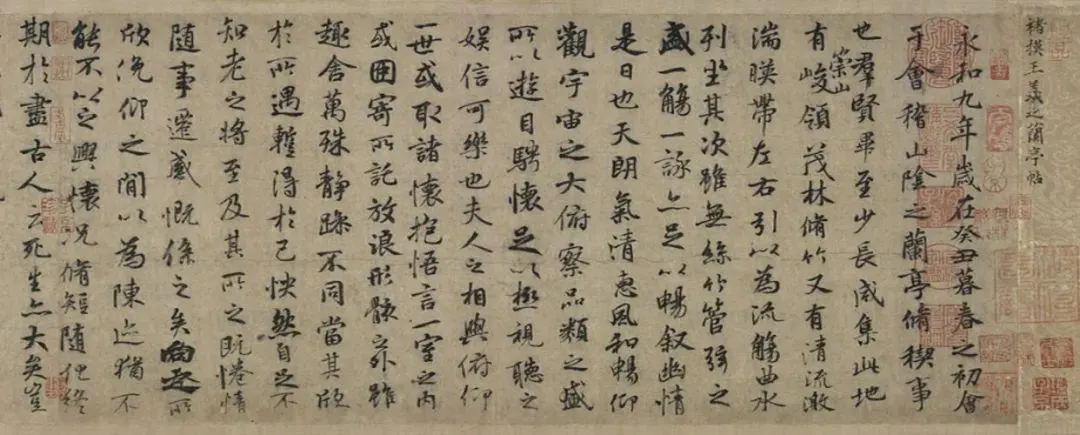 褚模王羲之蘭亭帖
永和九年歲在癸丑暮春之初會
于會稽山陰之蘭亭脩稧事
也羣賢畢至少長咸集此地
有崇山峻領茂林脩竹又有清流激
湍暎帶左右引以為流觴曲水
列坐其次雖無絲竹管弦之
盛一觴一詠亦足以暢叙幽情
是日也天朗氣清惠風和暢仰
觀宇宙之大俯察品類之盛
所以遊目騁懷足以極視聽之
娛信可樂也夫人之相與俯仰
一世或取諸懷抱悟言一室之內
或因寄所託放浪形骸之外雖
趣舍萬殊靜躁不同當其欣
於所遇蹔得於己怏然自足不
知老之將至及其所之既惓情
隨事遷感慨係之矣向之所
欣俛仰之閒以為陳迹猶不
能不以之興懷況脩短隨化終
期於盡古人云死生亦大矣豈